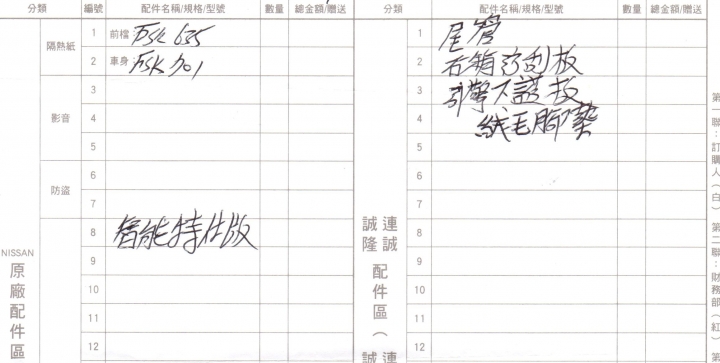 分類 編號 配件名稱/規格/型號 數量 總金額/贈送 分類 配件名稱/規格/型號 數量 總金額/贈送
隔熱紙 1 前檔：FSK 635
2 車身：FSK 701
影音 3
4
5
防盜 6
7
NISSAN 原廠配件區
8 智能特仕版
9
10
11
12
連誠 誠隆 配件區（連 誠
1 尾管
2 后箱
3 引擎下護板
4 絨毛腳
5
6
7
8
9
10
11
12
第一聯：訂購人（白） 第二聯：財務部（紅） 第